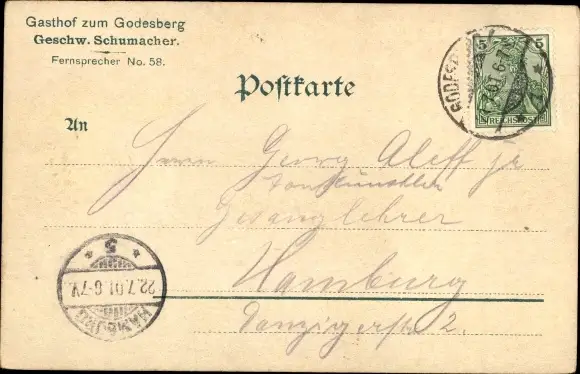 Gasthof zum Godesberg
Geschw. Schumacher.
Fernsprecher No. 58.
Postkarte
5 5
REICHSPOST
GODESB
An
Herrn Georg Aleff jr
Tonkünstler
Gesanglehrer
Hamburg
Danzigerstr 2.
5
22.7.01.6-7V.
HAMBURG